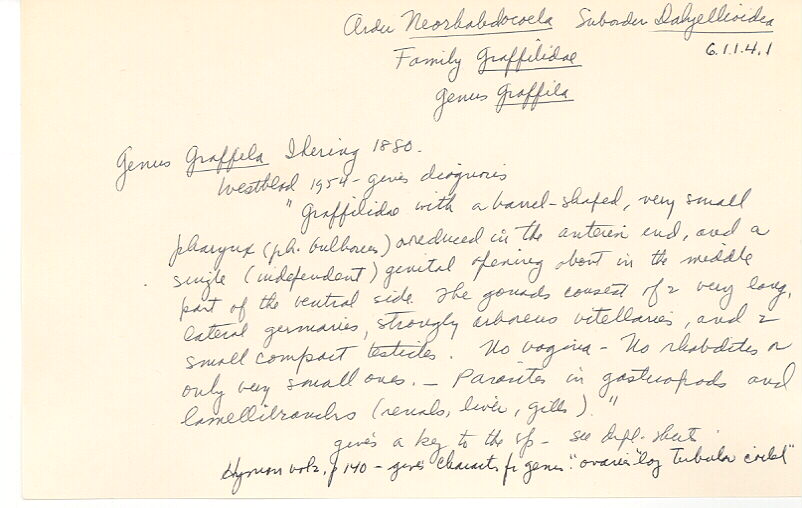 Order Neorhabdocoela Suborder Dalyellioidea
6.1.1.4.1
Family Graffilidae
Genus Graffila
Genus Graffela Ihering 1880.
Westblad 1954 - gives diagnosis
"Graffilidae with a barrel-shaped, very small
pharynx (ph. bulbosus) in the anterior end, and a
single (independent) genital opening about in the middle
part of the ventral side. The gonads consist of 2 very long,
lateral germaries, strongly arboreus vitellaries, and 2
small compact testicles. No vagina - No rhabdites or
only very small ones. - Parasites in gastropods and
lamellibranchs (renals, liver, gills)."
gives a key to the sp - see sheets
Hyman vol 2, p 140 - gives charact. fr genus: "ovaries" long tubular